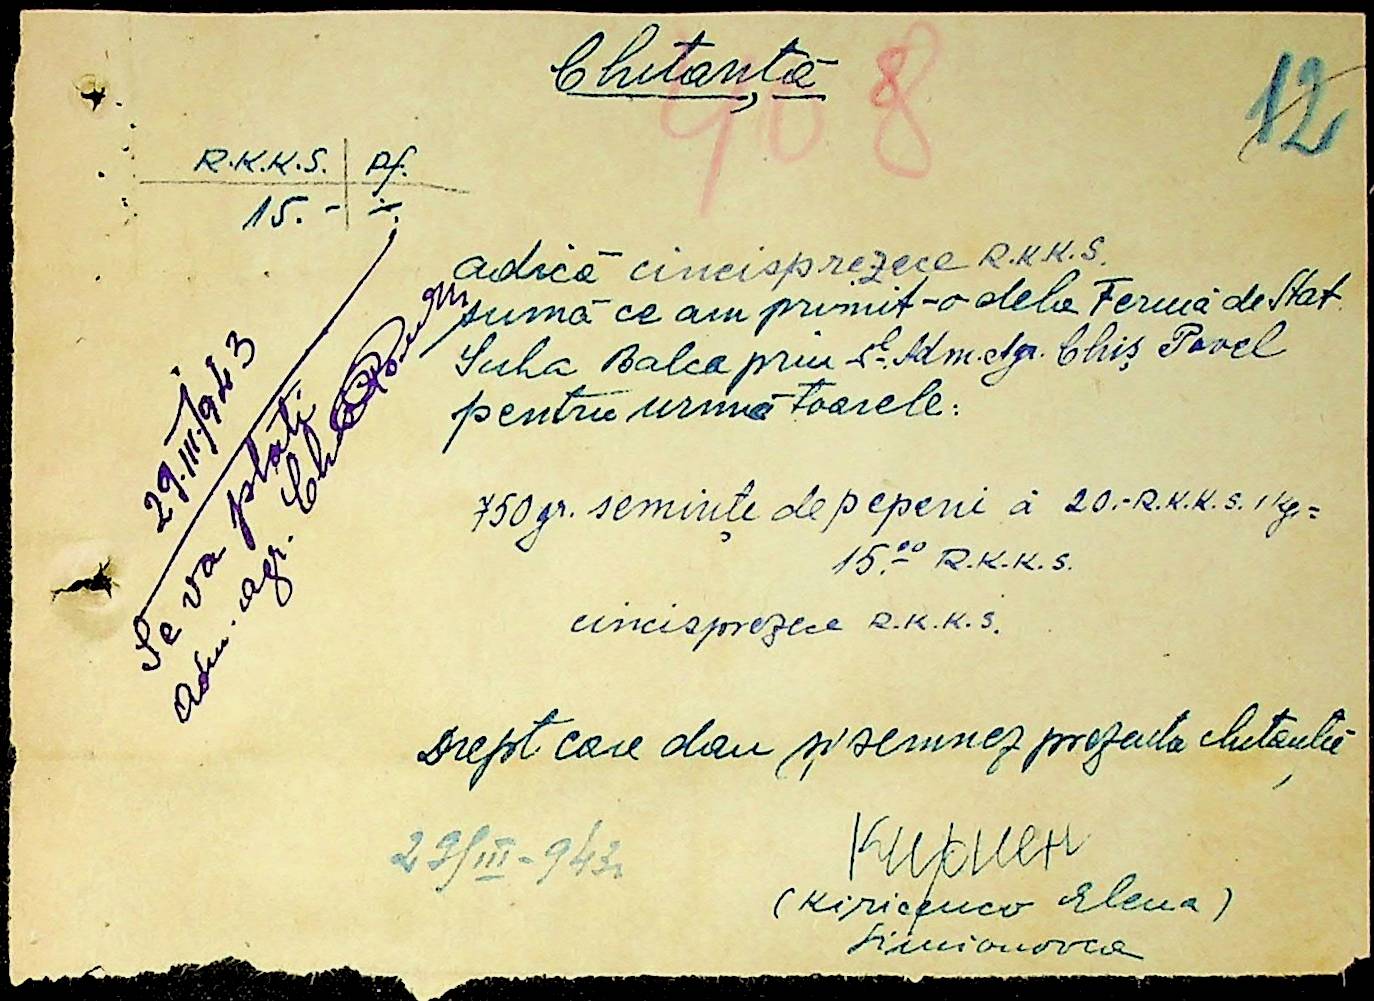 Chitanță
408
12
R.K.K.S. | Pf.
15.- | -.-
adică cincisprezece R.K.K.S.
sumă ce am primit-o dela Fermă de Stat
Suha Balca prin Dl. Adm. Agr. Chiș Pavel
pentru următoarele:
750 gr. semințe de pepeni à 20.- R.K.K.S. 1 Kg. =
15.00 R.K.K.S.
cincisprezece R.K.K.S.
Drept care dau și semnez prezenta chitanță
29/III-943
(Kiricenco Elena)
Simionovca
29.III.1943
Se va plăti
Adm. agr.